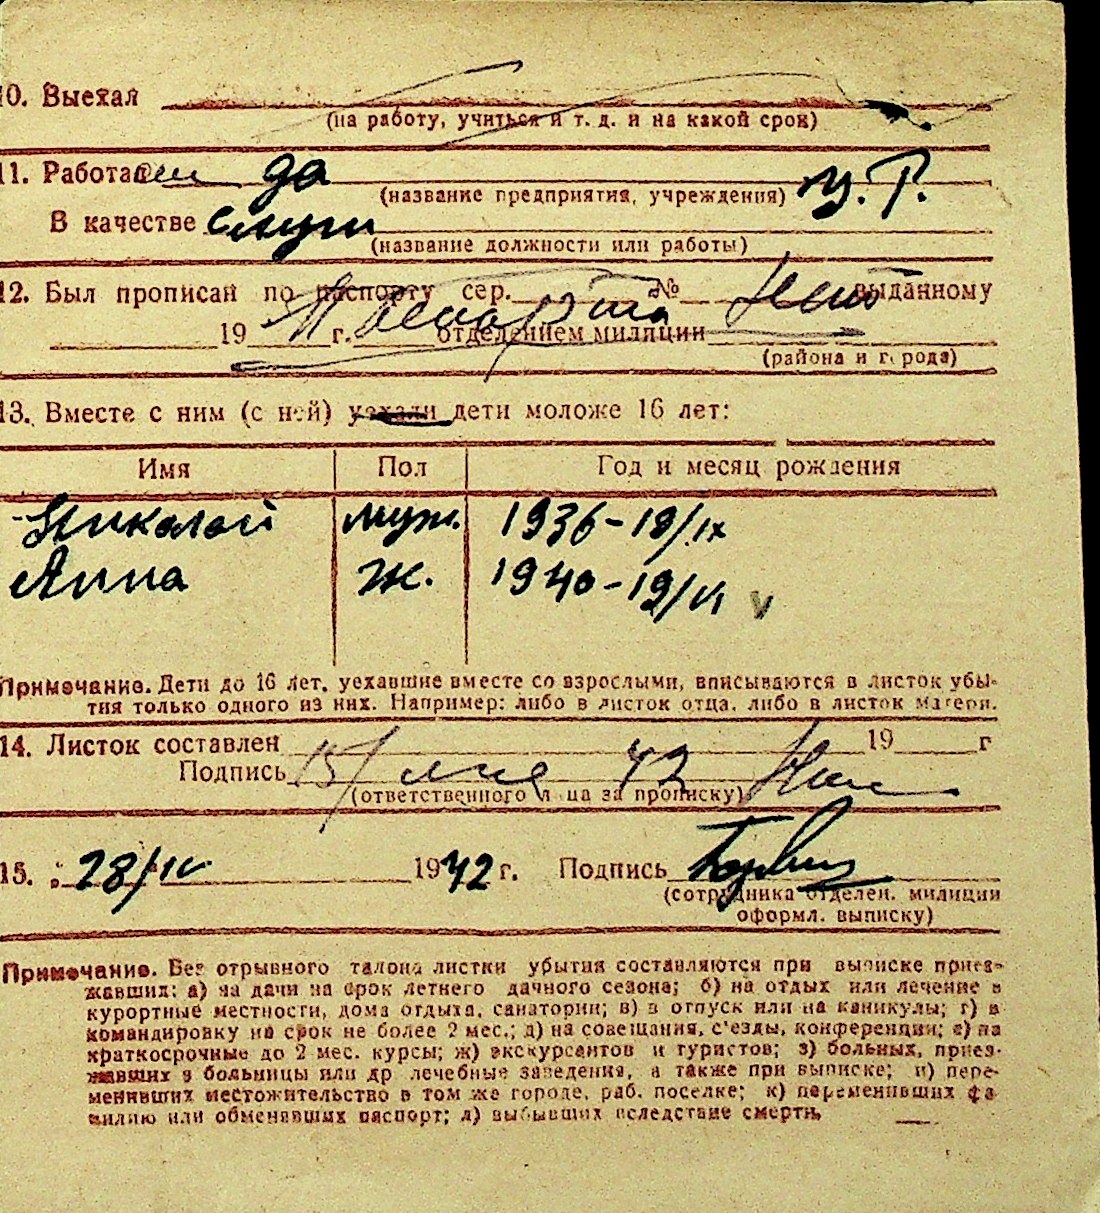 10. Выехал
(на работу, учиться и т. д. и на какой срок)
11. Работал да
(название предприятия, учреждения)
В качестве
(название должности или работы)
12. Был прописан по паспорту сер. № выданному
19 г. отделением милиции
(района и города)
13. Вместе с ним (с ней) уехали дети моложе 16 лет:
Имя Пол Год и месяц рождения
Николай муж. 1936-18/IX
Анна Ж. 1940-19/VI
Примечание. Дети до 16 лет, уехавшие вместе со взрослыми, вписываются в листок убы-
тия только одного из них. Например: либо в листок отца, либо в листок матери.
14. Листок составлен 19 г
Подпись 15/ 42
(ответственного лица за прописку)
15. 28/IV 1942 г. Подпись
(сотрудника отделен. милиции
оформл. выписку)
Примечание. Без отрывного талона листки убытия составляются при выписке приез-
жавших: а) на дачи на срок летнего дачного сезона; б) на отдых или лечение в
курортные местности, дома отдыха, санатории; в) в отпуск или на каникулы; г) в
командировку на срок не более 2 мес.; д) на совещания, с'езды, конференции; е) на
краткосрочные до 2 мес. курсы; ж) экскурсантов и туристов; з) больных, приез-
жавших в больницы или др лечебные заведения, а также при выписке; и) пере-
менивших местожительство в том же городе, раб. поселке; к) переменивших фа
милию или обменявших паспорт; л) выбывших вследствие смерти.